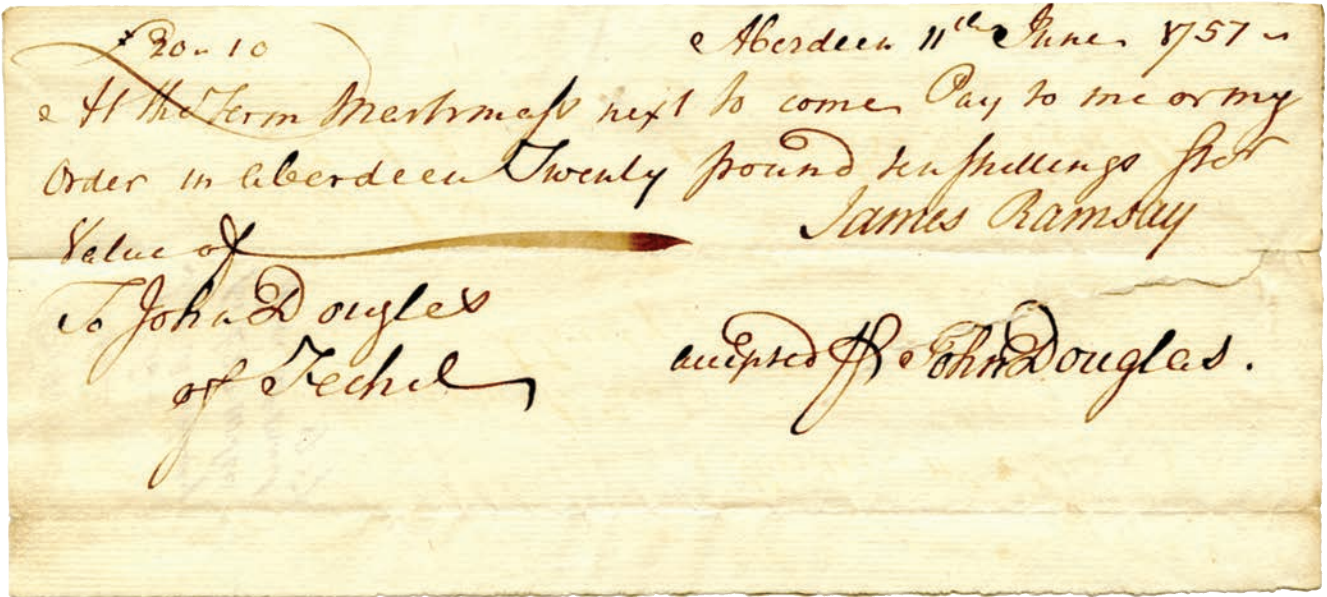 £ 20 - 10 Aberdeen 11th June 1757
At the Term Martimass next to come Pay to me or my
Order in Aberdeen Twenty pound ten shillings Ster
Value of James Ramsay
To John Douglas
of Fechel accepted John Douglas.